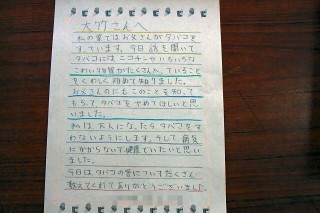 大竹さんへ
私の家ではお父さんがタバコを
すっています。今日話を聞いて
タバコには、ニコチンやいろいろな
こわい物質がたくさん入っていること
をくわしく初めて知りました。
お父さんのにもこのことを知って
もらってタバコをやめてほしいと思
いました。
私は、大人になったらタバコをす
わないようにします。そして病気
にかからないで健康でいたいと思い
ました。
今日はタバコの害についてたくさん
教えてくれてありがとうございました。